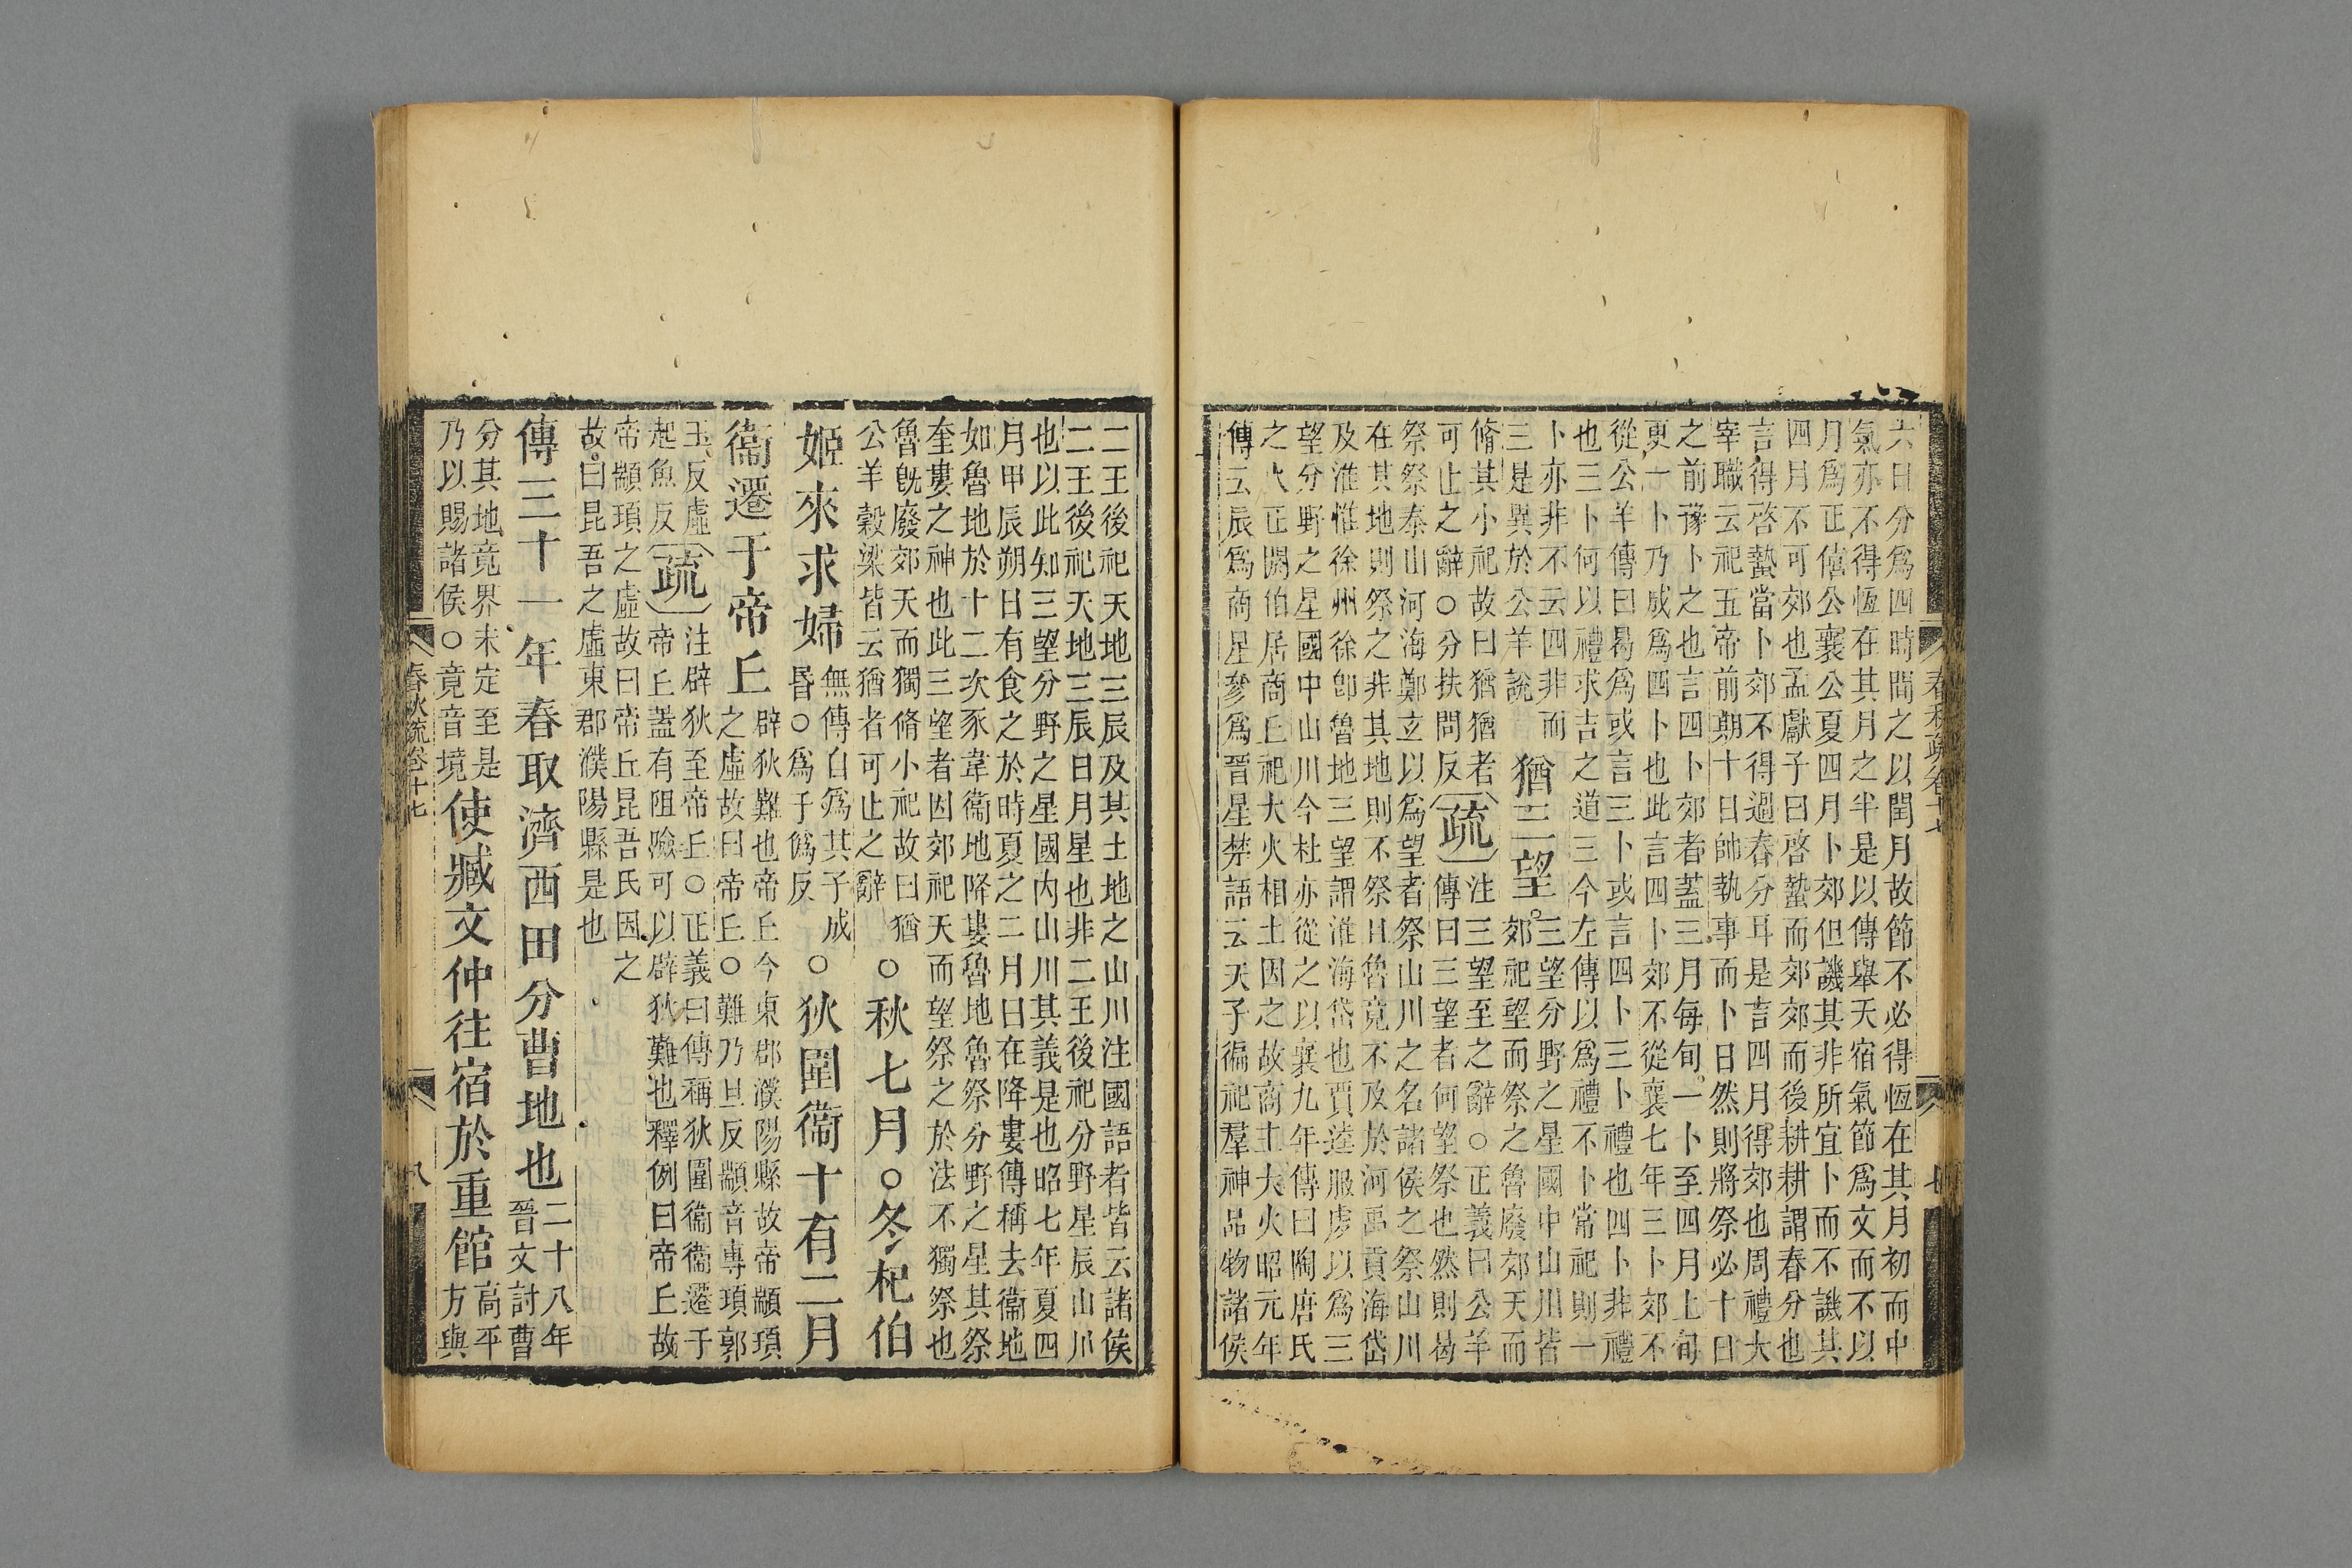 六日分爲四時間之以閏月故節不必得恆在其月初而中
氣亦不得恆在其月之半是以傳舉天宿氣節爲文而不以
月爲正僖公襄公夏四月卜郊但譏其非所宜卜而不譏其
四月不可郊也孟獻子曰啓蟄而郊郊而後耕耕謂春分也
言得啓蟄當卜郊不得過春分耳是言四月得郊也周禮大
宰職云祀五帝前期十日帥執事而卜日然則將祭必十日
之前豫卜之也言四卜郊者蓋三月每旬一卜至四月上旬
更一卜乃成爲四卜也此言四卜郊不從襄七年三卜郊不
從公羊傳曰曷爲或言三卜或言四卜三卜禮也四卜非禮
也三卜何以禮求吉之道三今左傳以爲禮不卜常祀則一
卜亦非不云四非而
三是異於公羊說
猶三望
三望分野之星國中山川皆
郊祀望而祭之魯廢郊天而
脩其小祀故曰猶猶者
可止之辭○分扶問反
疏
注三望至之辭○正義曰公羊
傳曰三望者何望祭也然則曷
祭祭泰山河海鄭玄以爲望者祭山川之名諸侯之祭山川
在其地則祭之非其地則不祭且魯竟不及於河禹貢海岱
及淮惟徐州徐卽魯地三望謂淮海岱也賈逵服虔以爲三
望分野之星國中山川今杜亦從之以襄九年傳曰陶唐氏
之火正閼伯居商丘祀大火相土因之故商主大火昭元年
傳云辰爲商星參爲晉星楚語云天子徧祀羣神品物諸侯
春秋疏卷十七
七
二王後祀天地三辰及其土地之山川注國語者皆云諸侯
二王後祀天地三辰日月星也非二王後祀分野星辰山川
也以此知三望分野之星國內山川其義是也昭七年夏四
月甲辰朔日有食之於時夏之二月日在降婁傳稱去衞地
如魯地於十二次豕韋衞地降婁魯地魯祭分野之星其祭
奎婁之神也此三望者因郊祀天而望祭之於法不獨祭也
魯旣廢郊天而獨脩小祀故曰猶
公羊穀梁皆云猶者可止之辭
○秋七月○冬杞伯
姬來求婦
無傳自爲其子成
昏○爲于僞反
○狄圍衞十有二月
衞遷于帝丘
辟狄難也帝丘今東郡濮陽縣故帝顓頊
之虛故曰帝丘○難乃旦反顓音專頊郭
玉反虛
起魚反
疏
注辟狄至帝丘○正義曰傳稱狄圍衞衞遷于
帝丘蓋有阻險可以辟狄難也釋例曰帝丘故
帝顓頊之虛故曰帝丘昆吾氏因之
故曰昆吾之虛東郡濮陽縣是也
傳三十一年春取濟西田分曹地也
二十八年
晉文討曹
分其地竟界未定至是
乃以賜諸侯○竟音境
使臧文仲往宿於重館
高平
方與
春秋疏卷十七
八